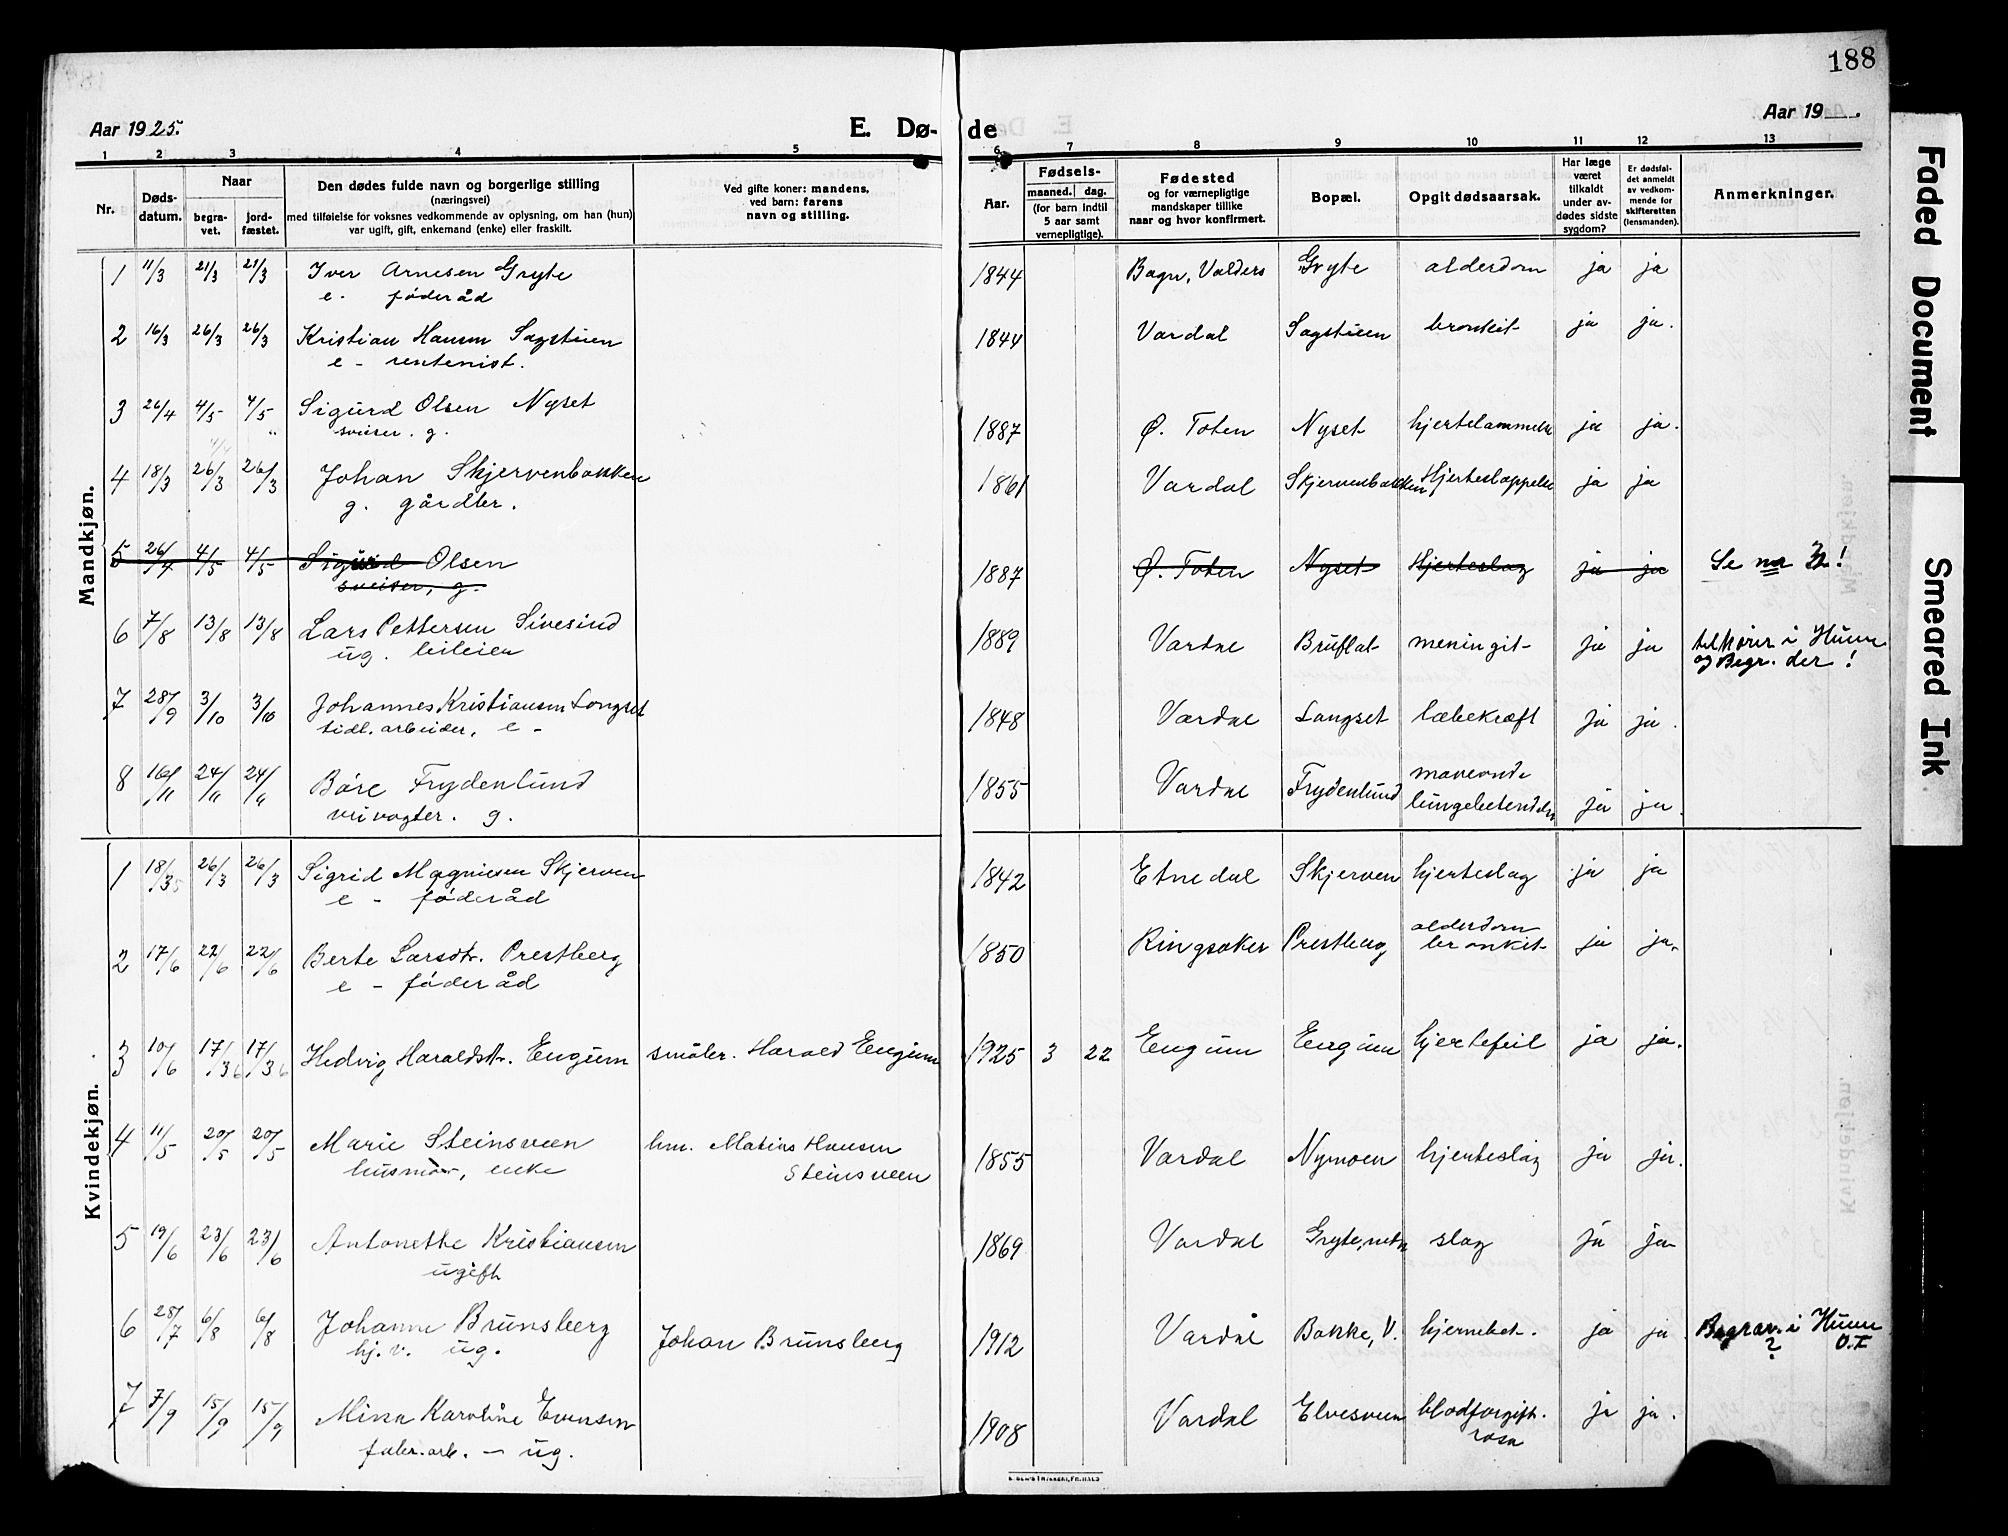 188
Aar 1925.
E. Dø-
de
Aar 19
1 2 3 4 5 6 7 8 9 10 11 12 13
Nr.
Døds-
datum.
Naar
begra-
vet.
jord-
fæstet.
Den dødes fulde navn og borgerlige stilling
(næringsvei)
med tilføielse for voksnes vedkommende av oplysning, om han (hun)
var ugift, gift, enkemand (enke) eller fraskilt.
Ved gifte koner: mandens,
ved barn: farens
navn og stilling.
Aar.
Fødsels-
maaned. dag.
(for barn indtil
5 aar samt
vernepligtige).
Fødested
og for værnepligtige
mandskaper tillike
naar og hvor konfirmert.
Bopæl.
Opgit dødsaarsak.
Har læge
været
tilkaldt
under av-
dødes sidste
sygdom?
Er dødsfal-
det anmeldt
av vedkom-
mende for
skifteretten
(lensmanden).
Anmerkninger.
Mandkjøn.
1 11/3 21/3 21/3 Iver Arnesen Gryte 1844 Bagn, Valders Gryte alderdom ja ja
e. føderåd
2 16/3 26/3 26/3 Kristian Hansen Sagstuen 1844 Vardal Sagstuen bronkit ja ja.
e - rentenist.
3 26/4 4/5 4/5 Sigurd Olsen Nyset 1887 Ø. Toten Nyset hjertelammelse ja ja.
sveiser. g.
4 18/3 26/3 26/3 Johan Skjervenbakken 1861 Vardal Skjervenbakken Hjerteslappelse ja ja
g. gårdbr.
5 26/4 4/5 4/5 Sigurd Olsen 1887 Ø. Toten Nyset Hjerteslag ja ja Se nr 3!
sveiser, g.
6 7/8 13/8 13/8 Lars Pettersen Sivesind 1889 Vardal Bruflat meningit ja ja tilhører i Hunn
ug. og Begr. der!
7 28/9 3/10 3/10 Johannes Kristiansen Langset 1848 Vardal Langset læbekræft ja ja.
tidl. arbeider, e -
8 16/11 24/11 24/11 Båre Frydenlund 1855 Vardal Frydenlund maveonde
veivogter. g. lungebetendelse ja ja.
Kvindekjøn.
1 18/3 26/3 26/3 Sigrid Magnusen Skjerven 1842 Etnedal Skjerven hjerteslag ja ja
e - føderåd
2 17/6 22/6 22/6 Berte Larsdtr. Prestberg 1850 Ringsaker Prestberg alderdom
bronkit ja ja.
e - føderåd
3 10/6 17/3 6 17/3 6 Hedvig Haraldsdtr. Engum småbr. Harald Engum 1925 3 22 Engum Engum hjertefeil ja ja.
4 11/5 20/5 20/5 Marie Steinsveen hm. Matias Hansen 1855 Vardal Nymoen hjerteslag ja ja.
husmor, enke Steinsveen
5 19/6 23/6 23/6 Antonette Kristiansen 1869 Vardal Gryte, nedr slag ja ja
ugift
6 28/7 6/8 6/8 Johanne Brunsberg Johan Brunsberg 1912 Vardal Bakke, V. hjernebet. ja ja Begrav. i Hunn
hj. v. ug. ? O.F
7 7/9 15/9 15/9 Mina Karoline Evensen 1908 Vardal Elvesveen blodforgift. ja ja.
fabr. arb. - ug. rosa
Faded Document
Smeared Ink